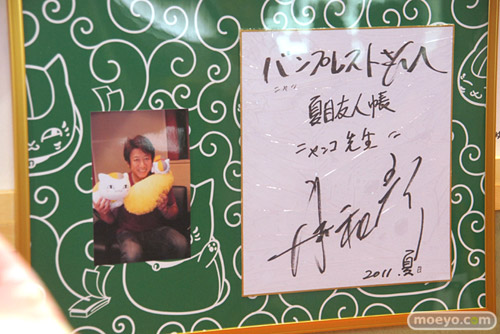 バンプレストさんへ
夏目友人帳
ニャンコ先生
井上和彦
2011.夏
moeyo.com